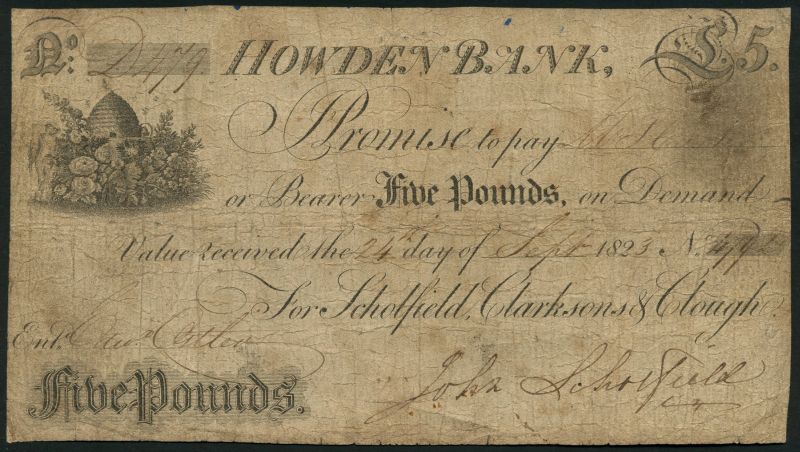 No: D479 HOWDEN BANK, £5.
I Promise to pay
or Bearer Five Pounds, on Demand
Value received the 24th day of Sept 1823 No. 479
For Scholfield, Clarksons & Clough.
Entd.
Five Pounds. John Scholfield